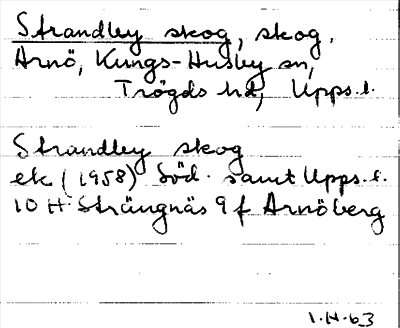 Strandley skog, skog.
Arnö, Kungs-Husby sn,
Trögds hd, Upps.l.
Strandley skog
ek (1958) Söd. samt Upps.l.
10 H Strängnäs 9 f Arnöberg
1.H.63